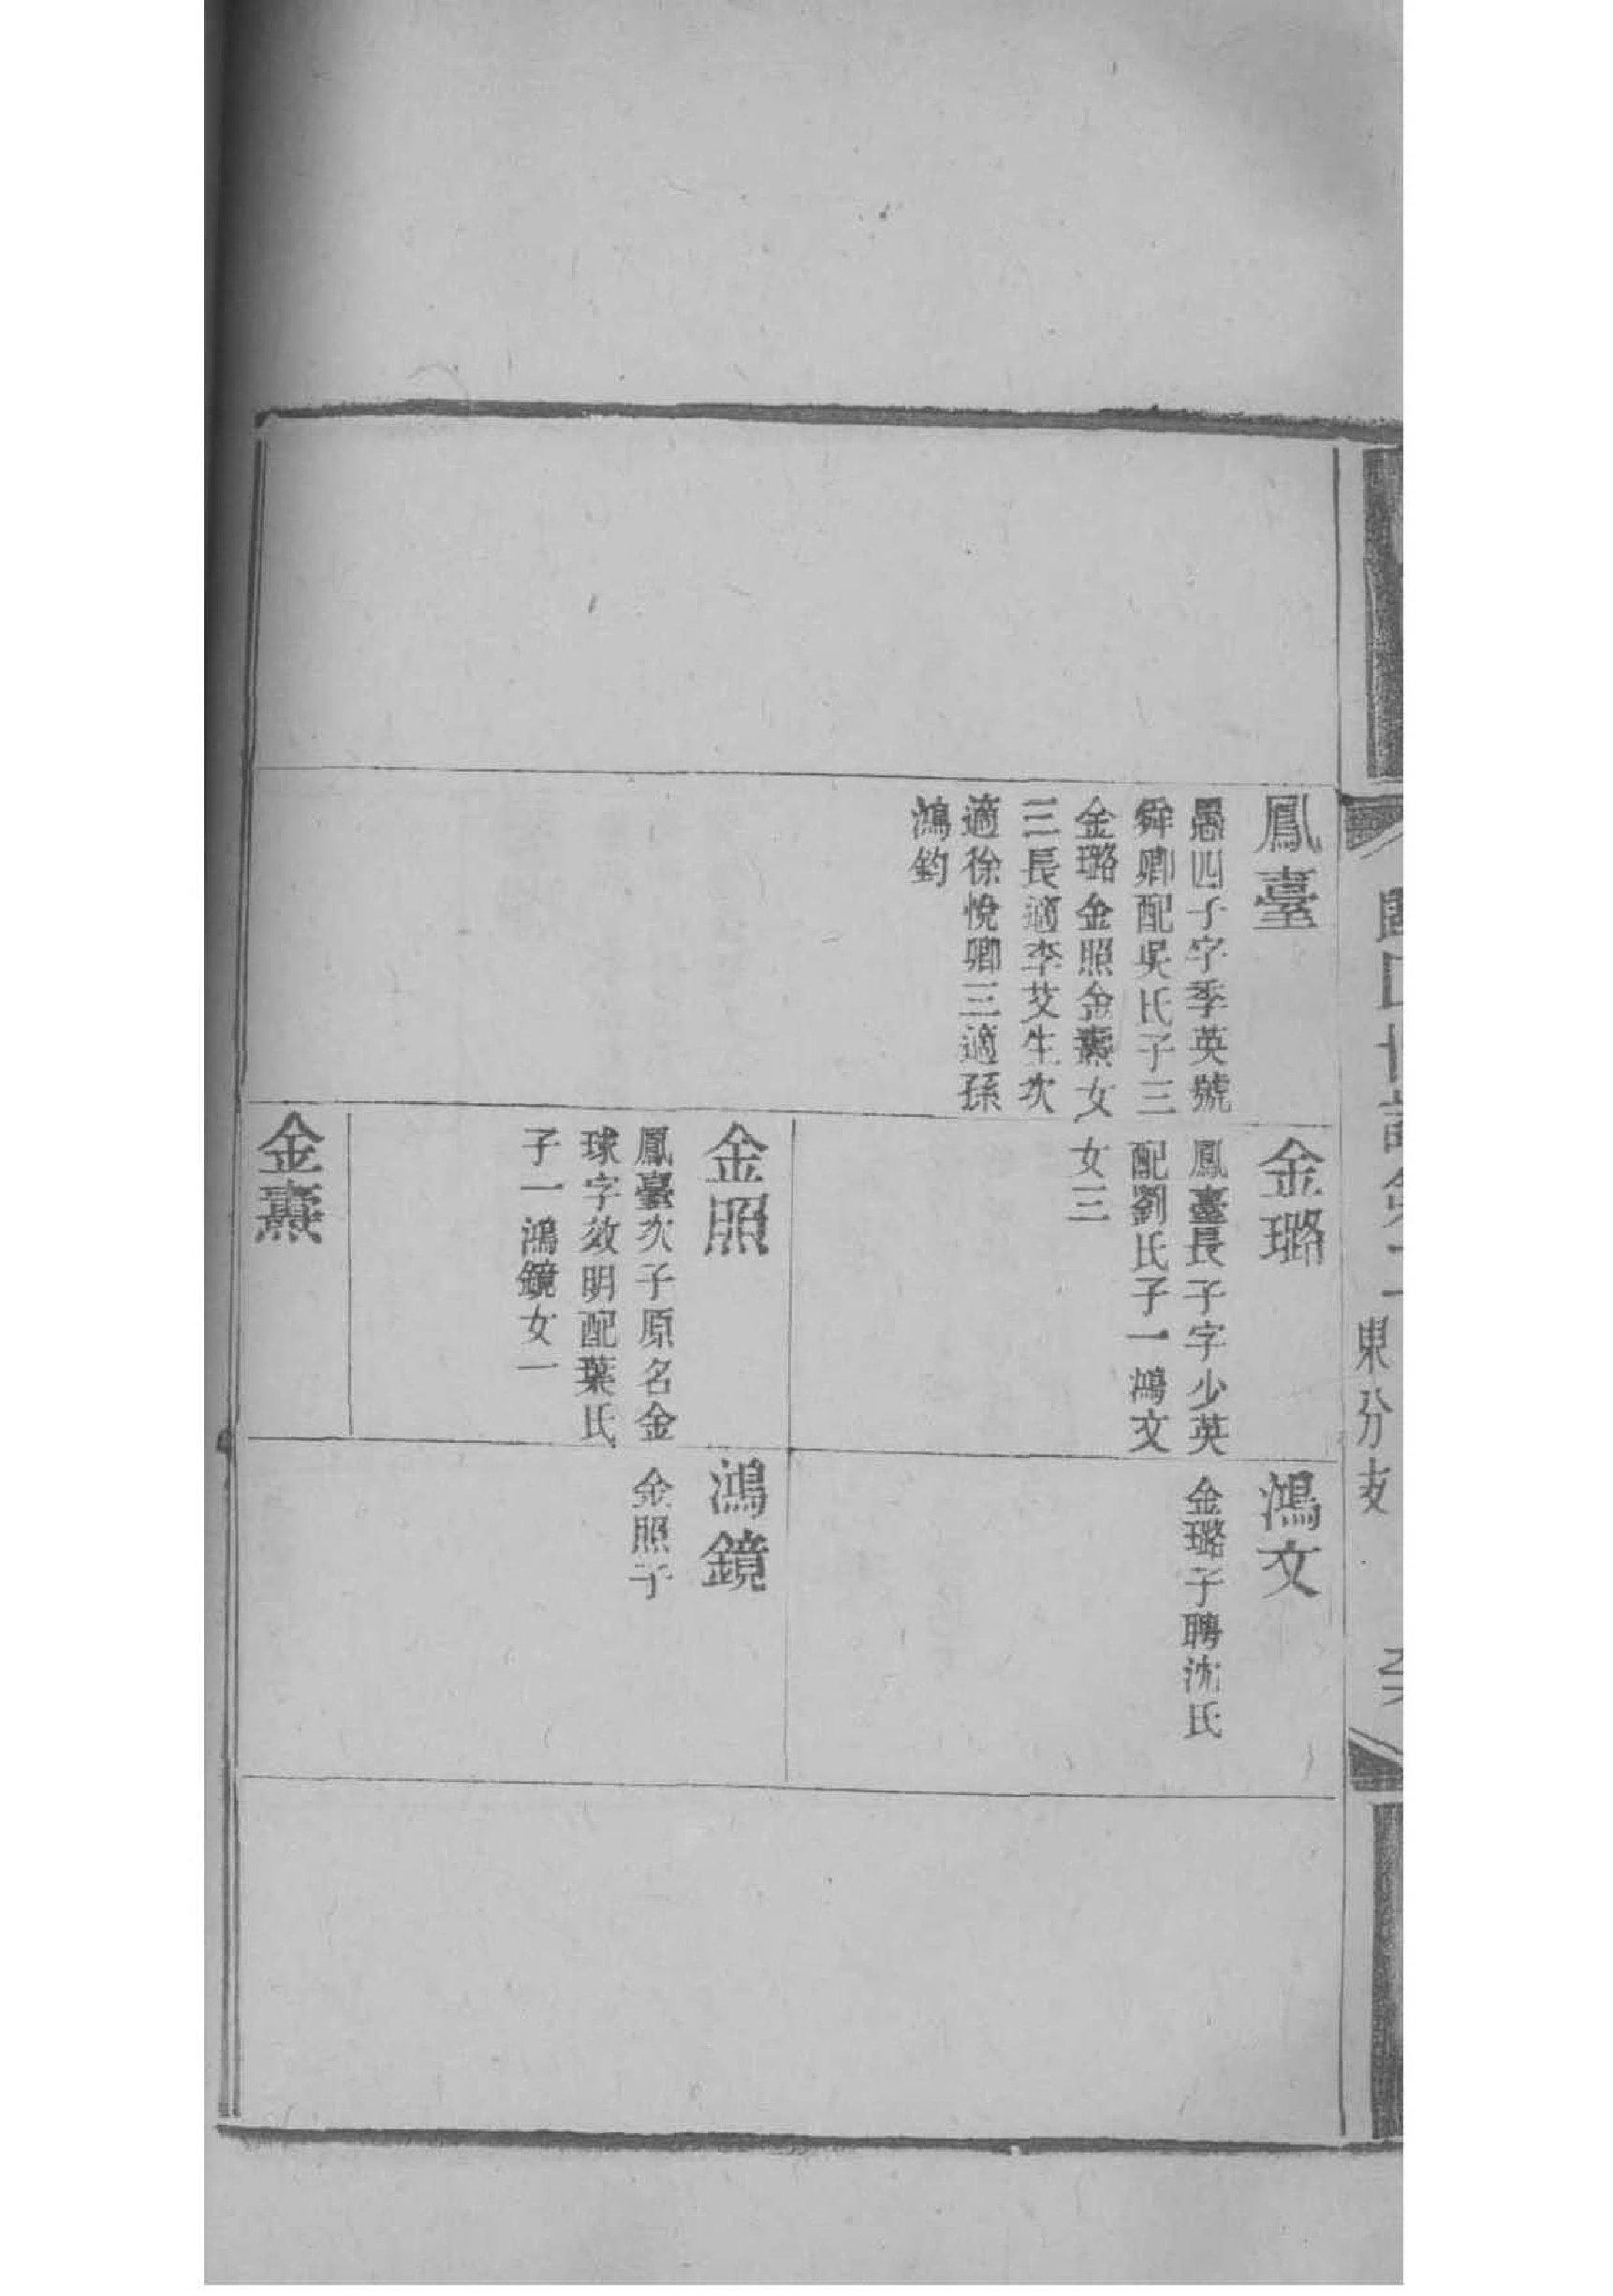 東分支
鳳臺
愚四子字季英號
舜卿配吳氏子三
金璐金照金燾女
三長適李艾生次
適徐悅卿三適孫
鴻鈞
金璐
鳳臺長子字少英
配劉氏子一鴻文
女三
鴻文
金璐子聘沈氏
金照
鳳臺次子原名金
球字效明配葉氏
子一鴻鏡女一
鴻鏡
金照子
金燾